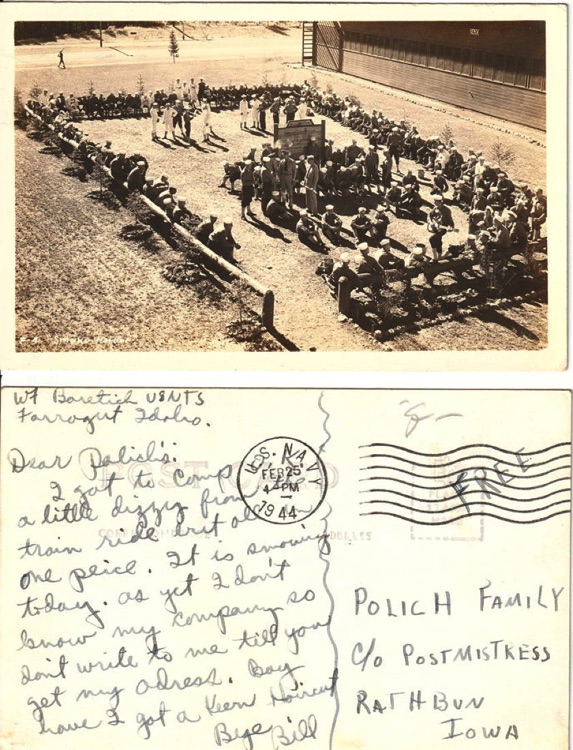 WF Baretich USNTS
Farragut Idaho.
Dear Polich's:
I got to Camp
a little dizzy from
train ride but all
one peice. It is snowing
today. as yet I don't
know my company so
don't write to me till you
get my adress. Boy
have I got a Keen Haircut
Bye
Bill
POST CARD
U.S. NAVY
FEB 25
4 PM
1944
FREE
POLICH FAMILY
C/o POSTMISTRESS
RATHBUN
IOWA